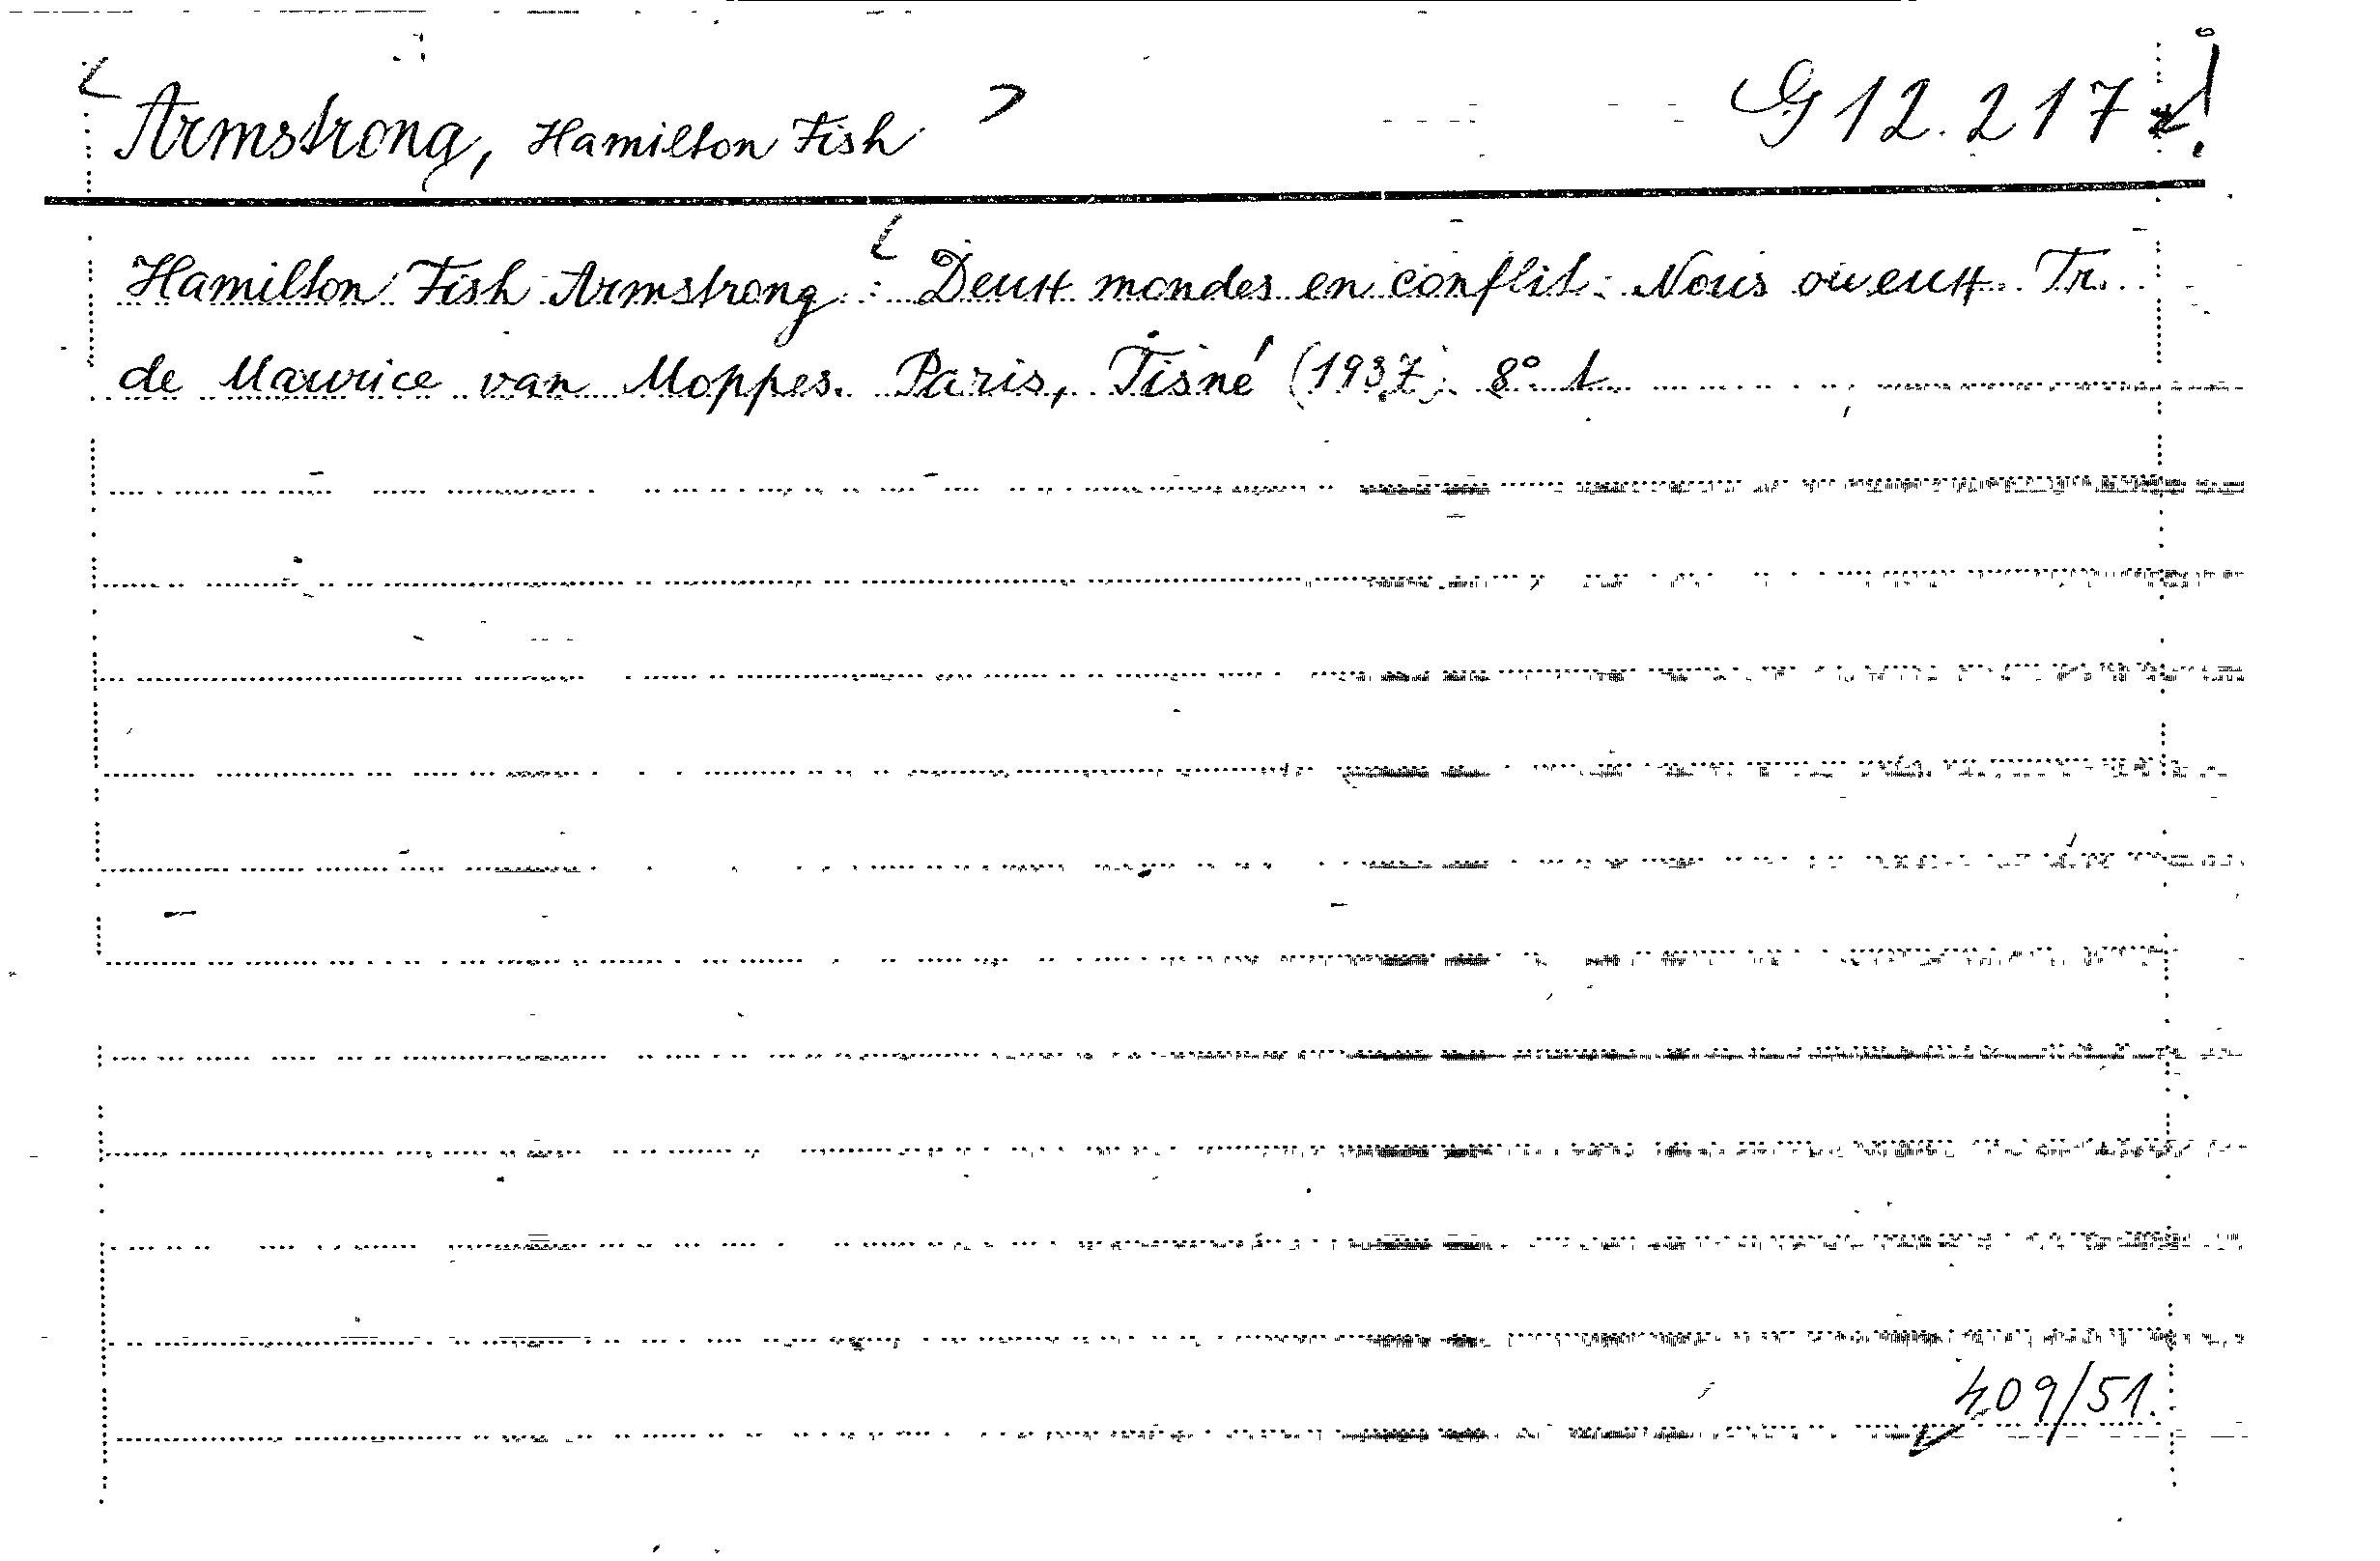 Armstrong, Hamilton Fish G 12.217
Hamilton Fish Armstrong: Deux mondes en conflit: Nous ou eux. Tr.
de Maurice van Moppes. Paris, Tisné (1937). 8° 1
409/51.